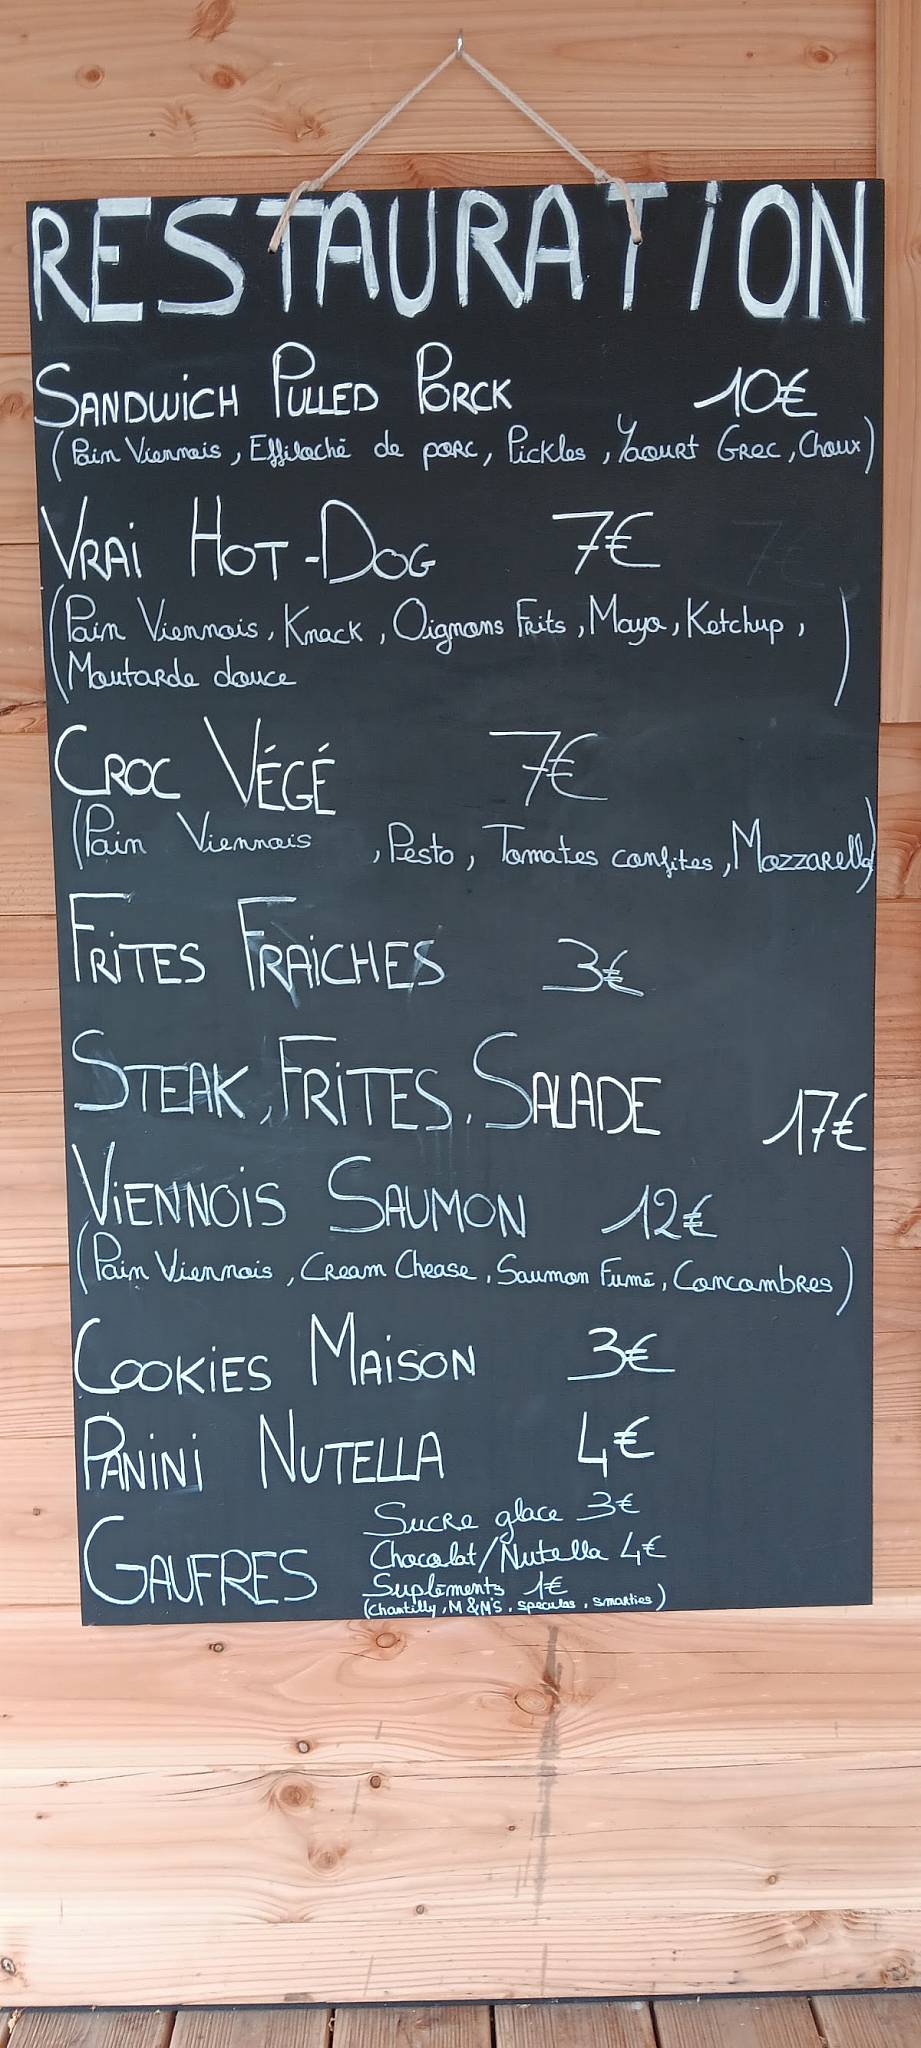 RESTAURATION
SANDWICH PULLED PORCK 10€
(Pain Viennois, Effiloché de porc, Pickles, Yaourt Grec, Choux)
VRAI HOT-DOG 7€
(Pain Viennois, Knack, Oignons Frits, Mayo, Ketchup,
Moutarde douce)
CROC VÉGÉ 7€
(Pain Viennois , Pesto, Tomates confites, Mozzarella)
FRITES FRAICHES 3€
STEAK, FRITES, SALADE 17€
VIENNOIS SAUMON 12€
(Pain Viennois, Cream Chease, Saumon Fumé, Concombres)
COOKIES MAISON 3€
PANINI NUTELLA 4€
GAUFRES Sucre glace 3€
Chocolat/Nutella 4€
Supléments 1€
(Chantilly, M&M'S, speculos, smarties)